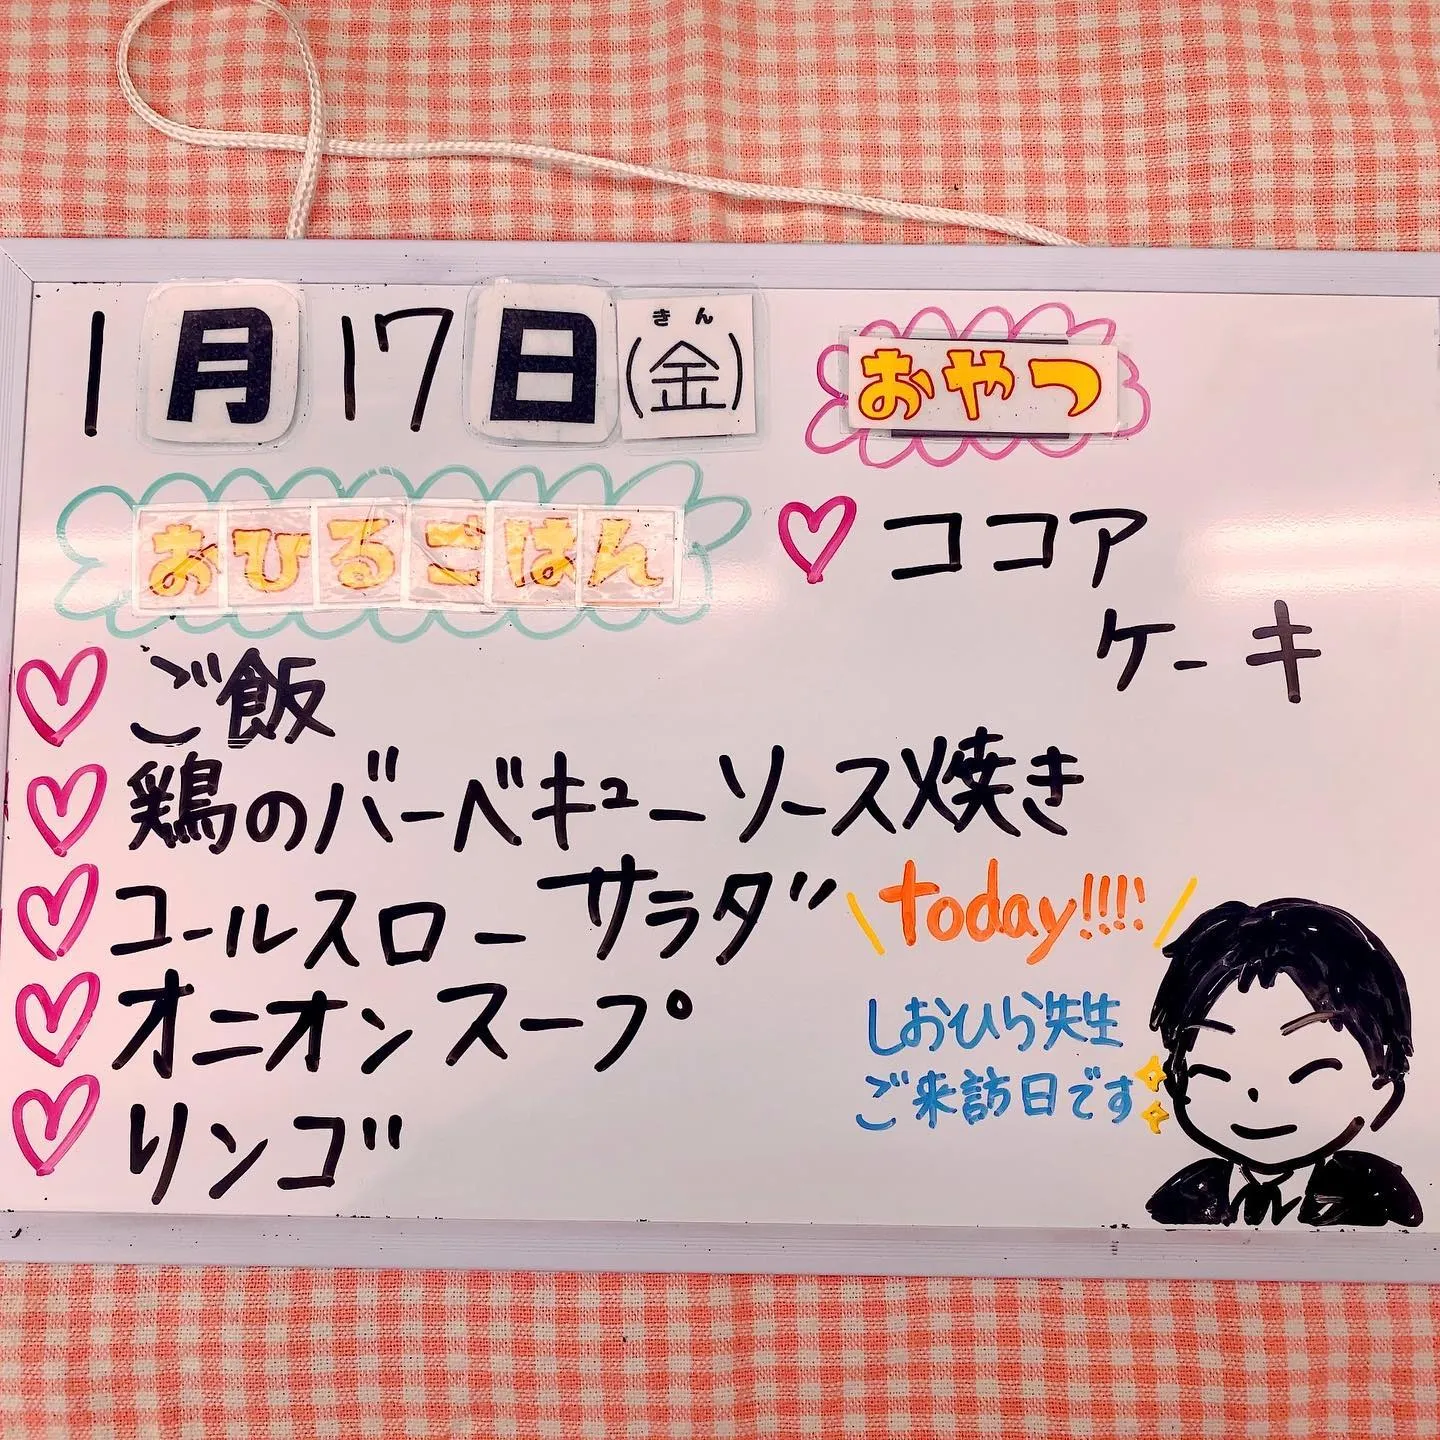 1月17日(金)
きん
おやつ
ココア
ケーキ
おひるごはん
ご飯
鶏のバーベキューソース焼き
コールスローサラダ
オニオンスープ
リンゴ
today!!!!
しおひら先生
ご来訪日です